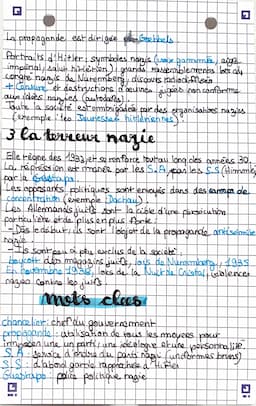 La propagande est dirigée Goebbels
Portraits d'Hitler, symboles nazis (croix gammée, aigle
impérial, salut hitlérien), grands rassemblements lors du
congrès nazis de Nuremberg, discours radiodiffusés
+ Censure et destructions d'œuvres jugées non conforme
aux idées nazies (autodafés).
Toute la société est embrigadée par des organisations nazies
(exemple : les Jeunesses hitlériennes)
3 la terreur nazie
Elle règne dès 1933 et se renforce tout au long des années 30.
La répression est menée par les S.A, par les S.S (Himmler)
par la Gestapo.
Les opposants politiques sont envoyés dans des camps de
concentration (exemple Dachau).
Les Allemands juifs sont la cible d'une persécution
particulière et de plus en plus forte :
- Dès le début ils sont l'objet de la propagande antisémite
nazie
- Ils sont peu à peu exclus de la société :
boycott des magasins juifs, lois de Nuremberg, 1935
En novembre 1938, lors de la Nuit de Cristal, violences
nazies contre les juifs
Mots clees
chancelier : chef du gouvernement
propagande : utilisation de tous les moyens pour
imposer une un parti, une idéologie et une personnalité.
S.A : service d'ordre du parti nazi (uniformes bruns)
S.S : d'abord garde rapprochée d'Hitler
Guestapo : police politique nazie